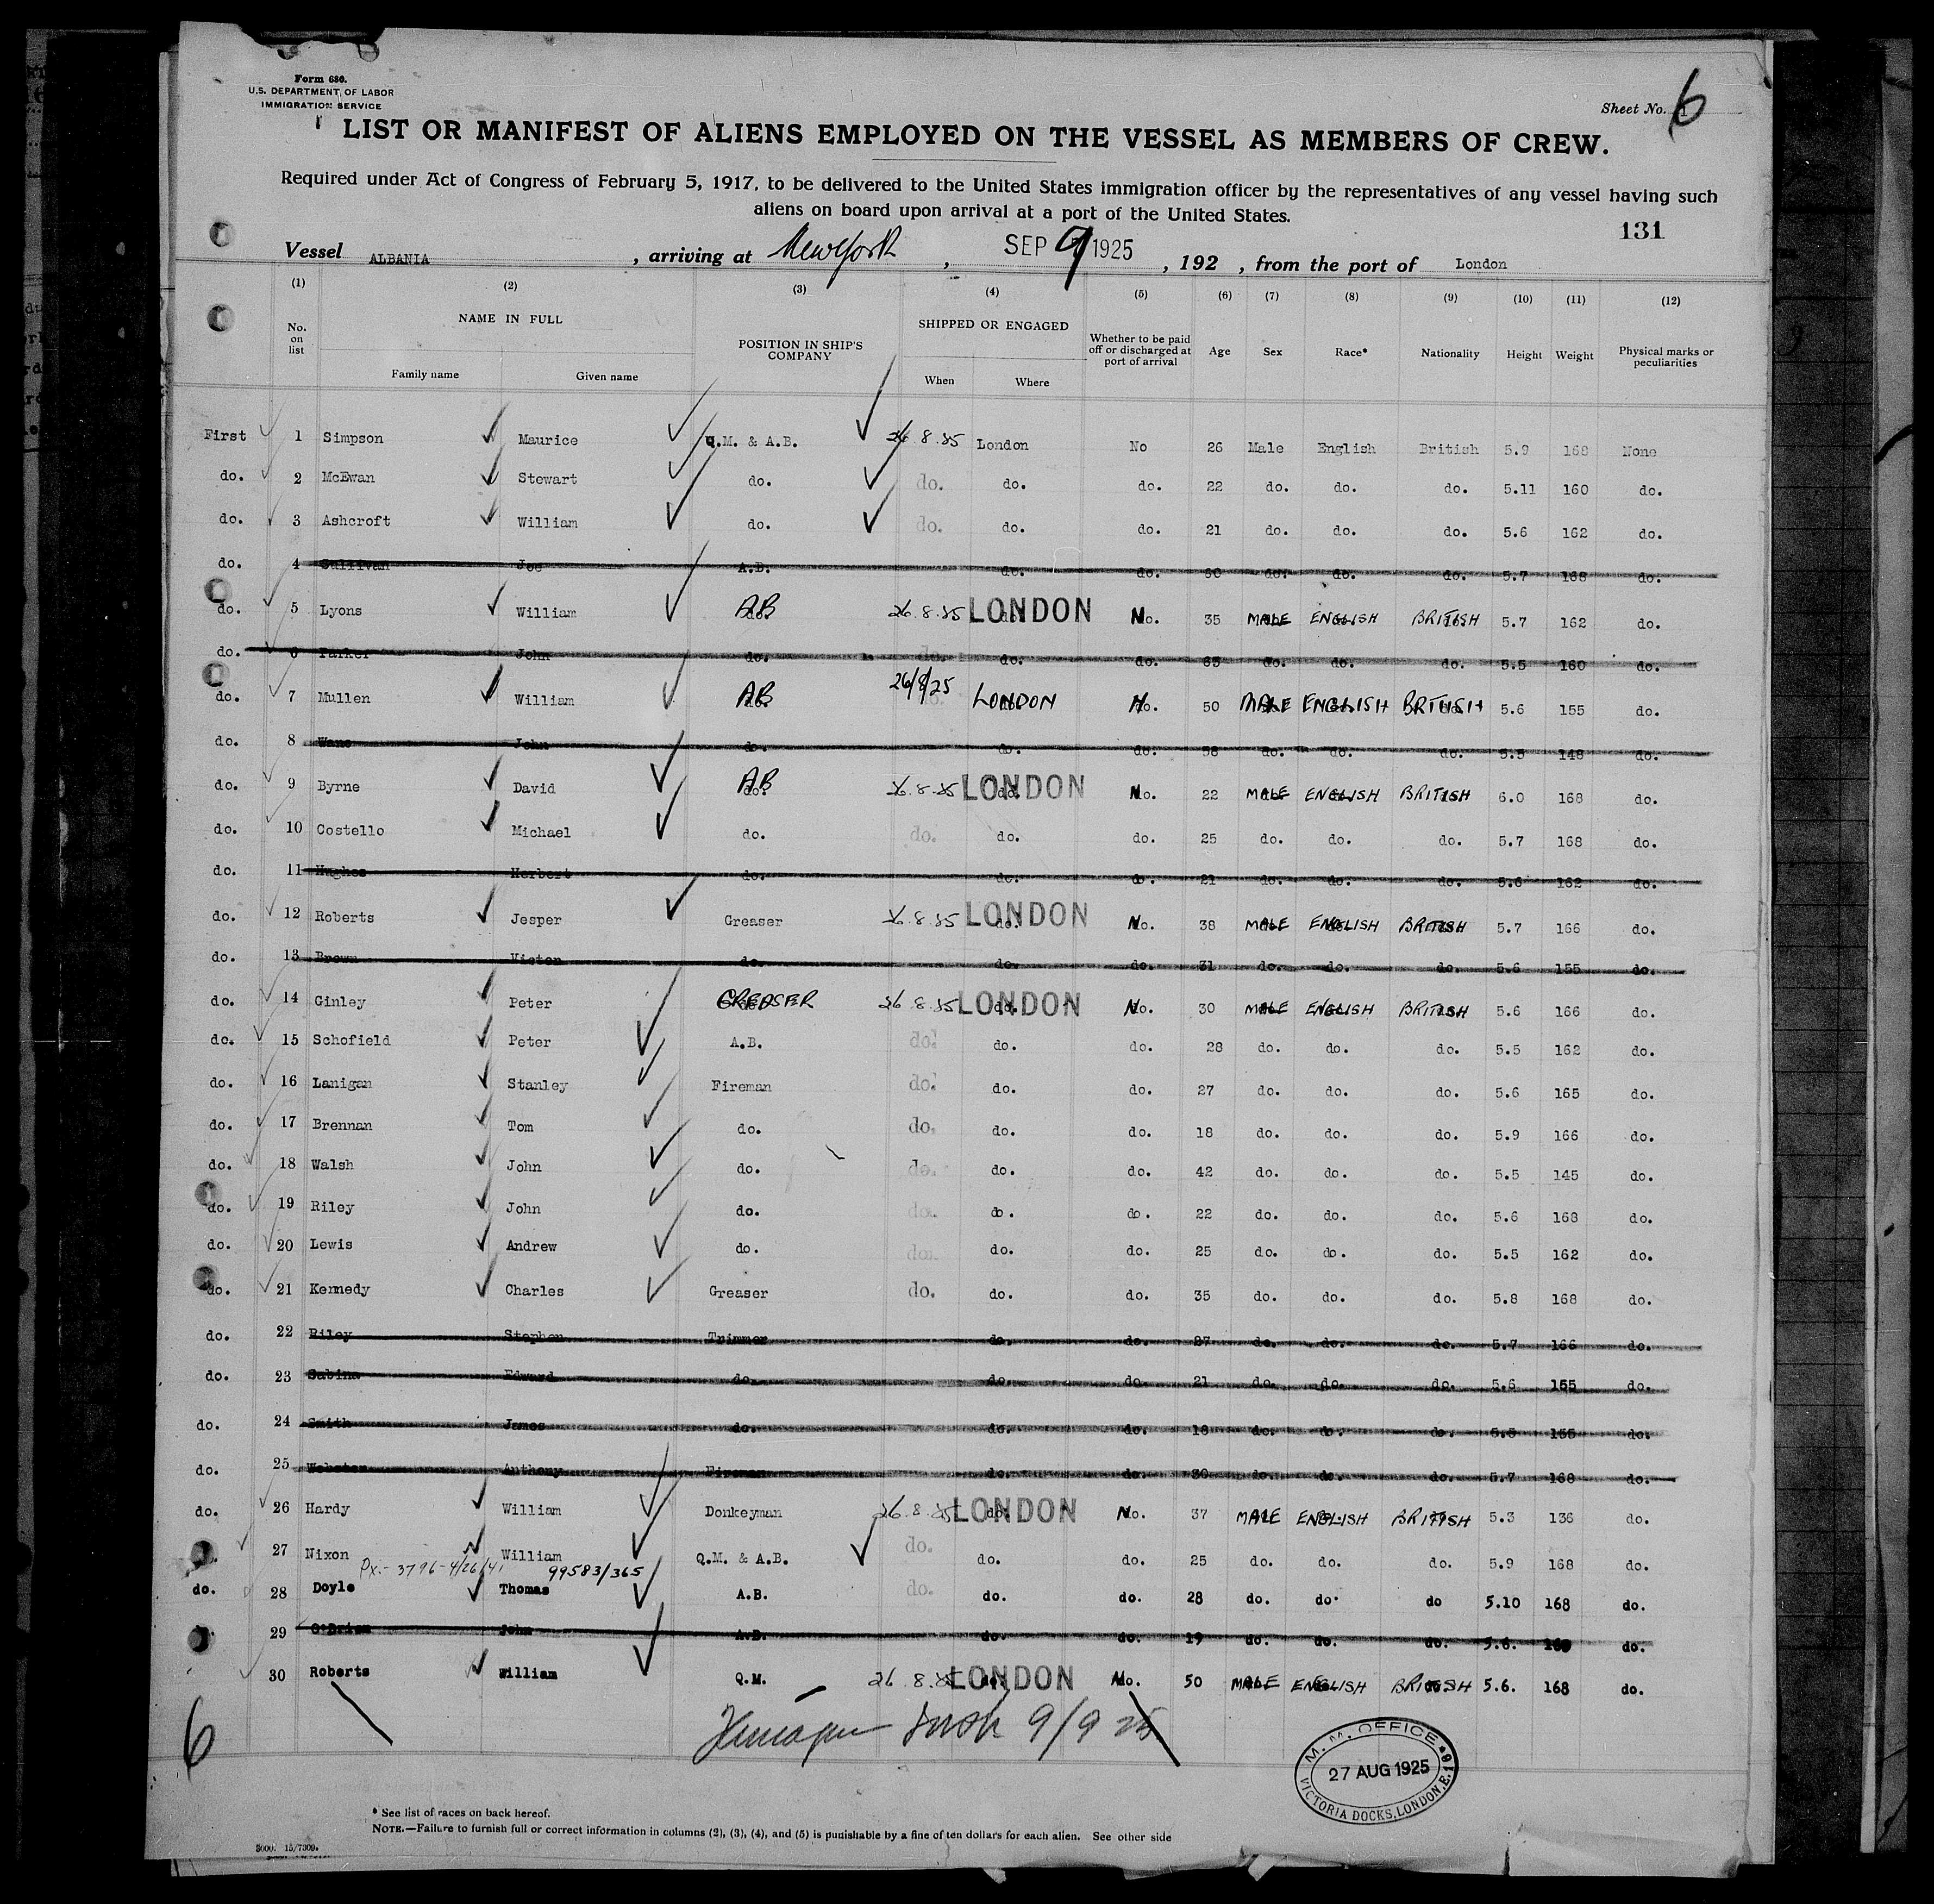 Form 680.
U.S. DEPARTMENT OF LABOR
IMMIGRATION SERVICE
Sheet No. 6
LIST OR MANIFEST OF ALIENS EMPLOYED ON THE VESSEL AS MEMBERS OF CREW.
Required under Act of Congress of February 5, 1917, to be delivered to the United States immigration officer by the representatives of any vessel having such
aliens on board upon arrival at a port of the United States.
131
Vessel ALBANIA , arriving at New York , SEP 9 1925 , 192 , from the port of London
(1) (2) (3) (4) (5) (6) (7) (8) (9) (10) (11) (12)
No. on list NAME IN FULL Family name Given name POSITION IN SHIP'S COMPANY SHIPPED OR ENGAGED When Where Whether to be paid off or discharged at port of arrival Age Sex Race* Nationality Height Weight Physical marks or peculiarities
First 1 Simpson Maurice Q.M. & A.B. 26.8.25 London No 26 Male English British 5.9 168 None
do. 2 McEwan Stewart do. do. do. do. 22 do. do. do. 5.11 160 do.
do. 3 Ashcroft William do. do. do. do. 21 do. do. do. 5.6 162 do.
do. 4 Sullivan Joe A.B. do. do. do. do. do. 5.7 168 do.
do. 5 Lyons William AB 26.8.25 LONDON No. 35 MALE ENGLISH BRITISH 5.7 162 do.
do. 6 Parker John do. do. do. do. 65 do. do. do. 5.5 160 do.
do. 7 Mullen William AB 26/8/25 LONDON No. 50 MALE ENGLISH BRITISH 5.6 155 do.
do. 8 John do. do. do. 58 do. do. do. 5.5 148 do.
do. 9 Byrne David AB 26.8.25 LONDON No. 22 MALE ENGLISH BRITISH 6.0 168 do.
do. 10 Costello Michael do. do. do. do. 25 do. do. do. 5.7 168 do.
do. 11 Hughes Herbert do. do. do. 21 do. do. do. 5.6 162 do.
do. 12 Roberts Jesper Greaser 26.8.25 LONDON No. 38 MALE ENGLISH BRITISH 5.7 166 do.
do. 13 Brown Victor do. do. do. 31 do. do. do. 5.6 155 do.
do. 14 Ginley Peter GREASER 26.8.25 LONDON No. 30 MALE ENGLISH BRITISH 5.6 166 do.
do. 15 Schofield Peter A.B. do. do. do. 28 do. do. do. 5.5 162 do.
do. 16 Lanigan Stanley Fireman do. do. do. 27 do. do. do. 5.6 165 do.
do. 17 Brennan Tom do. do. do. do. 18 do. do. do. 5.9 166 do.
do. 18 Walsh John do. do. do. do. 42 do. do. do. 5.5 145 do.
do. 19 Riley John do. do. do. do. 22 do. do. do. 5.6 168 do.
do. 20 Lewis Andrew do. do. do. do. 25 do. do. do. 5.5 162 do.
do. 21 Kennedy Charles Greaser do. do. do. 35 do. do. do. 5.8 168 do.
do. 22 Riley Stephen Trimmer do. do. 27 do. do. do. 5.7 166 do.
do. 23 Sabina Edward do. do. do. 21 do. do. do. 5.6 155 do.
do. 24 Smith James do. do. do. 18 do. do. do. 5.5 155 do.
do. 25 Webster Anthony Fireman do. do. 30 do. do. do. 5.7 168 do.
do. 26 Hardy William Donkeyman 26.8.25 LONDON No. 37 MALE ENGLISH BRITISH 5.3 136 do.
27 Nixon William Q.M. & A.B. do. do. do. 25 do. do. do. 5.9 168 do.
Px.- 3796-4/26/41 99583/365
do. 28 Doyle Thomas A.B. do. do. do. 28 do. do. do 5.10 168 do.
29 O'Brien John A.B. do. do. 19 do. do. do. 5.6. do.
30 Roberts William Q.M. 26.8.25 LONDON No. 50 MALE ENGLISH BRITISH 5.6. 168 do.
6
9/9 25
M. M. OFFICE
27 AUG 1925
VICTORIA DOCKS, LONDON, E.16
* See list of races on back hereof.
NOTE.—Failure to furnish full or correct information in columns (2), (3), (4), and (5) is punishable by a fine of ten dollars for each alien. See other side
3000. 15/7309.